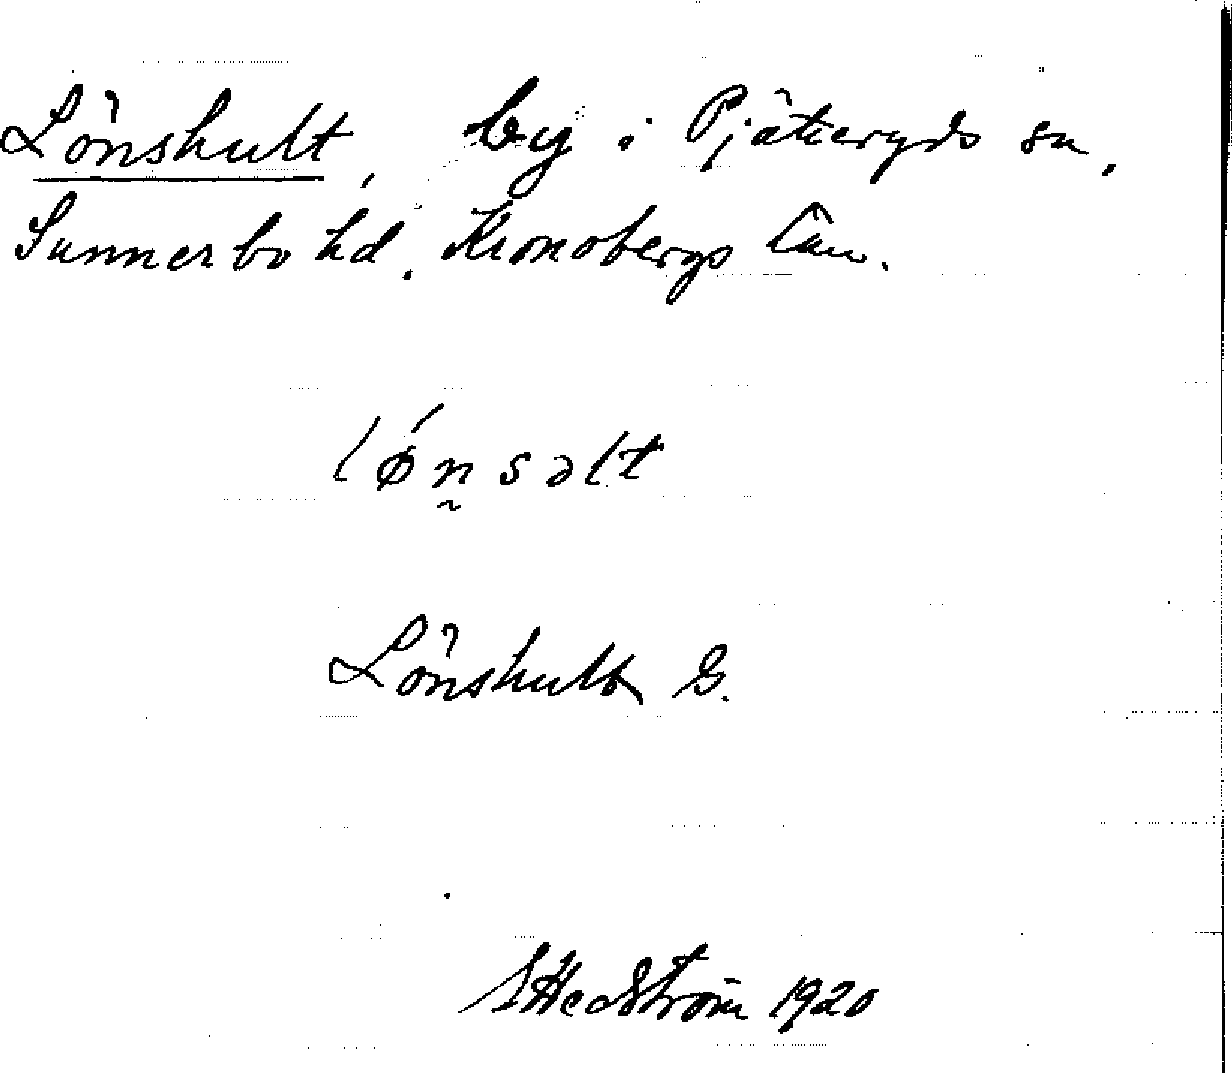 Lönshult, by i Pjätteryds sn,
Sunnerbo hd. Kronobergs län.
lǿn̰səlt
Lönshult G.
S Hedström 1920